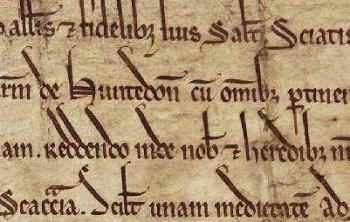 & fidelib; suis Salt̃ Sciatis
de Huntedoñ cũ omĩb; ꝑtinen
am. Reddendo inde nob̃ & heredib; n
Scaccia. Scilt̃ unam medietatẽ Ad